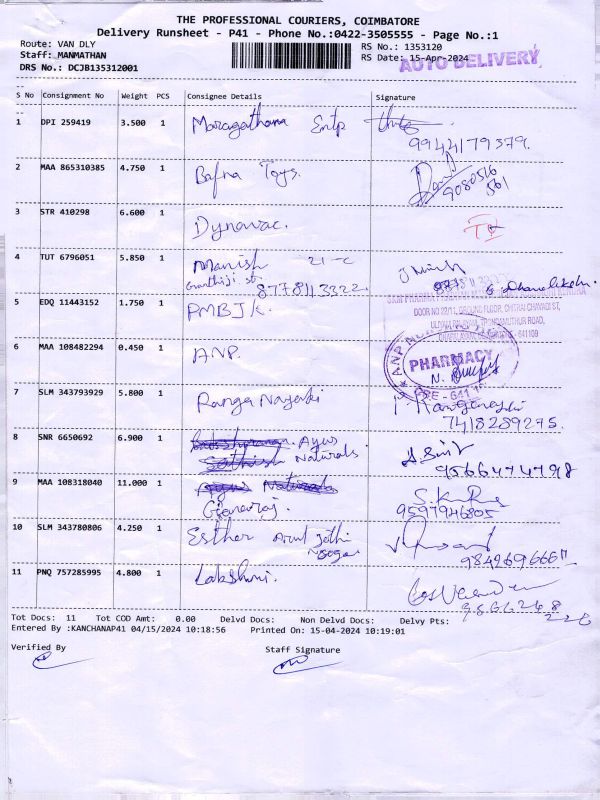 THE PROFESSIONAL COURIERS, COIMBATORE
Delivery Runsheet - P41 - Phone No.:0422-3505555 - Page No.:1
Route: VAN DLY RS No.: 1353120
Staff: MANMATHAN RS Date: 15-Apr-2024
AUTO DELIVERY
DRS No.: DCJB135312001
S No Consignment No Weight PCS Consignee Details Signature
1 DPI 259419 3.500 1 Maragathana Entp
9944179379.
2 MAA 865310385 4.750 1 Bafna Toys.
9080516
561
3 STR 410298 6.600 1 Dynovac.
4 TUT 6796051 5.850 1 Manish 21-C
Ganthiji st. 8778113322
5 EDQ 11443152 1.750 1 PMBJK.
DOOR NO 22/11, GROUND FLOOR, CHITRAI CHAVADI ST,
6 MAA 108482294 0.450 1 ANP.
PHARMACY
7 SLM 343793929 5.800 1 Ranga Nayaki
7418289275.
8 SNR 6650692 6.900 1 Ayur
Sathish Naturals.
9566474798
9 MAA 108318040 11.000 1 Ayur Naturals
Gjanaraj.
9597946805
10 SLM 343780806 4.250 1 Esther Arul Jothi
Nagar
11 PNQ 757285995 4.800 1 Lakshmi.
Tot Docs: 11 Tot COD Amt: 0.00 Delvd Docs: Non Delvd Docs: Delvy Pts:
Entered By :KANCHANAP41 04/15/2024 10:18:56 Printed On: 15-04-2024 10:19:01
Verified By Staff Signature